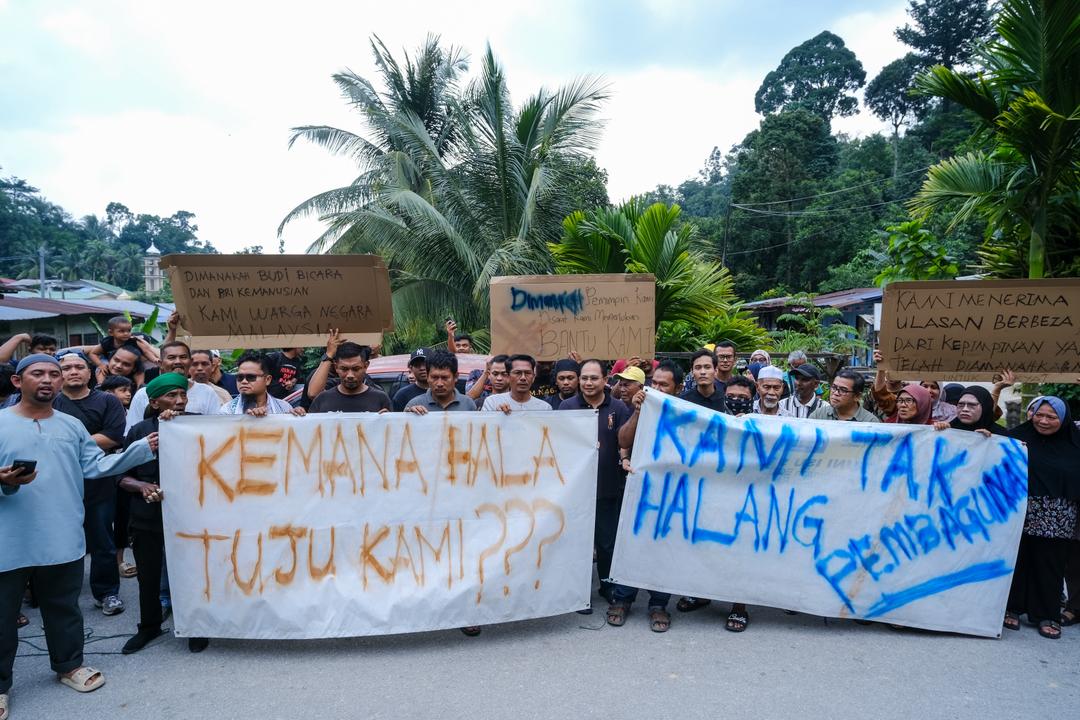 DIMANAKAH BUDI BICARA
DAN PRI KEMANUSIAN
KAMI WARGA NEGARA
MALAYSIA
Pemimpin Kami
Disaat Kami Memerlukan
BANTU KAMI
KAMI MENERIMA
ULASAN BERBEZA
DARI KEPIMPINAN YA
TELAH DIAMANAHKAN
KEMANA HALA
TUJU KAMI???
KAMI TAK
HALANG
PEMBAGUNAN